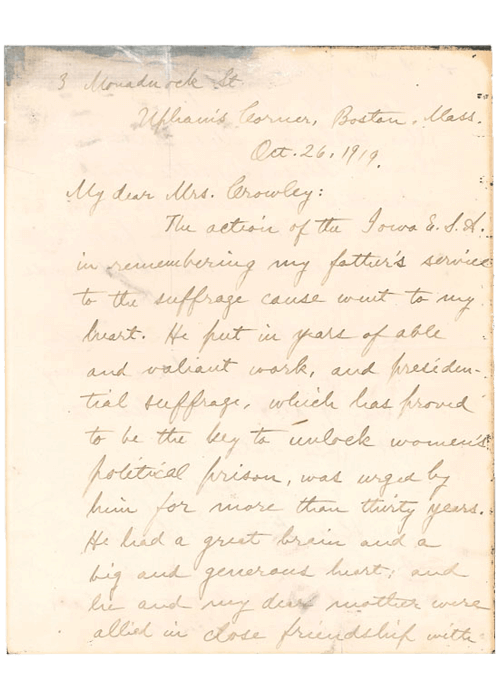 3 Monadnock St
Upham's Corner, Boston, Mass.
Oct. 26, 1919.
My dear Mrs. Crowley:
The action of the Iowa E. S. A.
in remembering my father's service
to the suffrage cause went to my
heart. He put in years of able
and valiant work, and presiden-
tial suffrage, which has proved
to be the key to unlock women's
political prison, was urged by
him for more than thirty years.
He had a great brain and a
big and generous heart; and
he and my dear mother were
allied in close friendship with